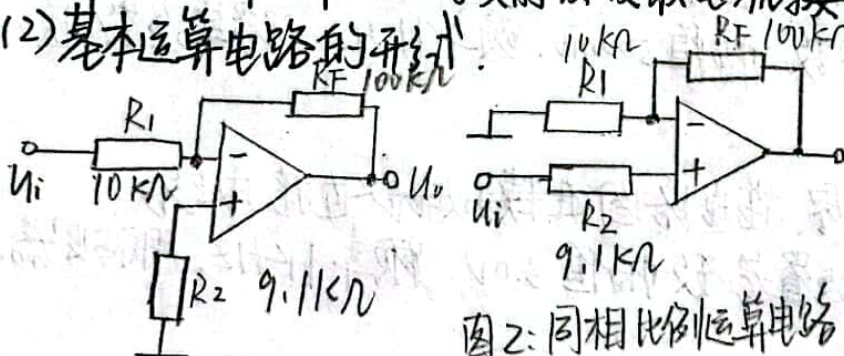 (2)基本运算电路的形式.
RF 100kΩ
R1
Ui
10kΩ
-
+
Uo
R2 9.1kΩ
10kΩ
R1
RF 100kΩ
-
+
Ui
R2
9.1kΩ
图2:同相比例运算电路